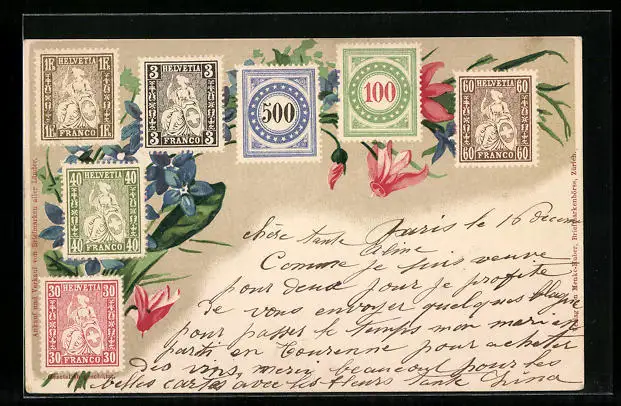 1R HELVETIA 1R
1R FRANCO 1R
3 HELVETIA 3
3 FRANCO 3
500
100
60 HELVETIA 60
60 FRANCO 60
40 HELVETIA 40
40 FRANCO 40
30 HELVETIA 30
30 FRANCO 30
Ankauf und Verkauf von Briefmarken aller Länder.
Menke-Huber, Briefmarkenbörse, Zürich.
Paris le 16
chère tante
Comme je suis veuve
pour deux jour je profite
de vous envoyer quelques
pour passer le temps mon mari est
parti en Tourenne pour acheter
des vins, merci beaucoup pour les
belles cartes avec les fleurs tante